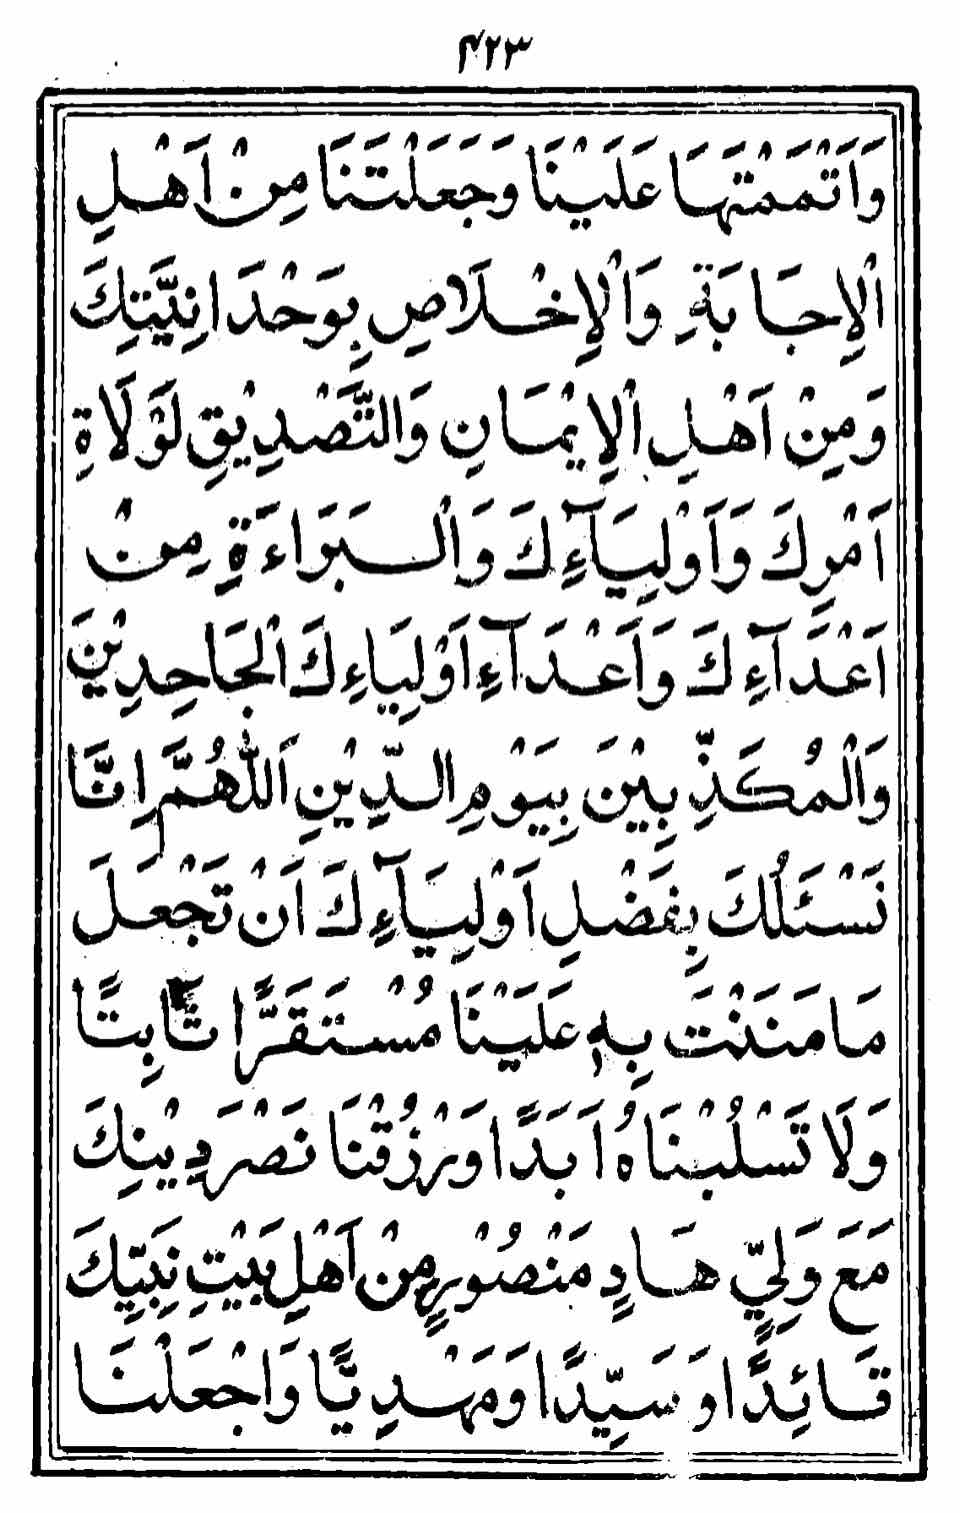 ۴۲۳
وَاَتْمَمْتَهَا عَلَيْنَا وَجَعَلْتَنَا مِنْ اَهْلِ
الْاِجَابَةِ وَالْاِخْلَاصِ بِوَحْدَانِيَّتِكَ
وَمِنْ اَهْلِ الْاِيْمَانِ وَالتَّصْدِيْقِ لِوُلَاةِ
اَمْرِكَ وَاَوْلِيَآءِكَ وَالْبَرَاءَةِ مِنْ
اَعْدَآءِكَ وَاَعْدَآءِ اَوْلِيَاءِكَ الْجَاحِدِيْنَ
وَالْمُكَذِّبِيْنَ بِيَوْمِ الدِّيْنِ اَللّٰهُمَّ اِنَّا
نَسْئَلُكَ بِفَضْلِ اَوْلِيَآءِكَ اَنْ تَجْعَلَ
مَا مَنَنْتَ بِهٖ عَلَيْنَا مُسْتَقَرًّا ثَابِتًا
وَلَا تَسْلُبْنَاهُ اَبَدًا وَرْزُقْنَا نَصْرَ دِيْنِكَ
مَعَ وَلِيٍّ هَادٍ مَنْصُوْرٍ مِنْ اَهْلِ بَيْتِ نَبِيِّكَ
قَائِدًا وَسَيِّدًا وَمَهْدِيًّا وَاجْعَلْنَا